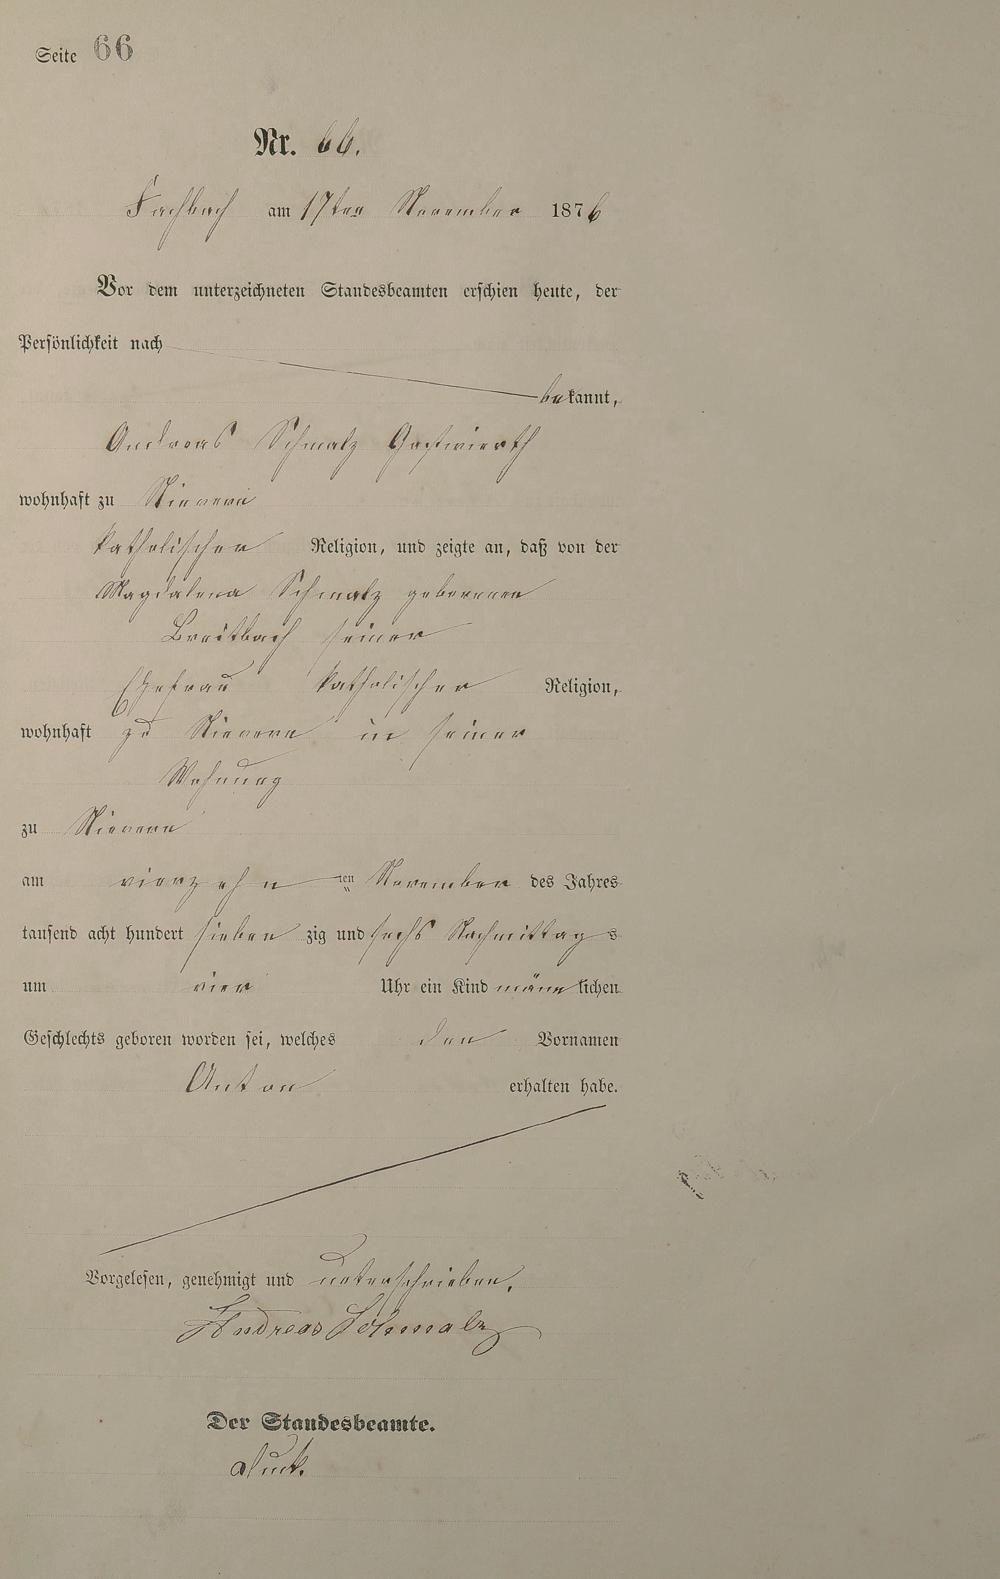 Seite 66
Nr. 66.
Fachbach am 17ten November 1876
Vor dem unterzeichneten Standesbeamten erschien heute, der
Persönlichkeit nach
bekannt,
Andreas Schmalz Gastwierth
wohnhaft zu Nievern
katholischer Religion, und zeigte an, daß von der
Magdalena Schmalz geborenen
Breitbach seiner
Ehefrau katholischer Religion,
wohnhaft zu Nievern in seiner
Wohnung
zu Nievern
am vierzehn ten November des Jahres
tausend acht hundert sieben zig und sechs Nachmittags
um vier Uhr ein Kind männlichen
Geschlechts geboren worden sei, welches den Vornamen
Anton erhalten habe.
Vorgelesen, genehmigt und unterschrieben.
Andreas Schmalz
Der Standesbeamte.